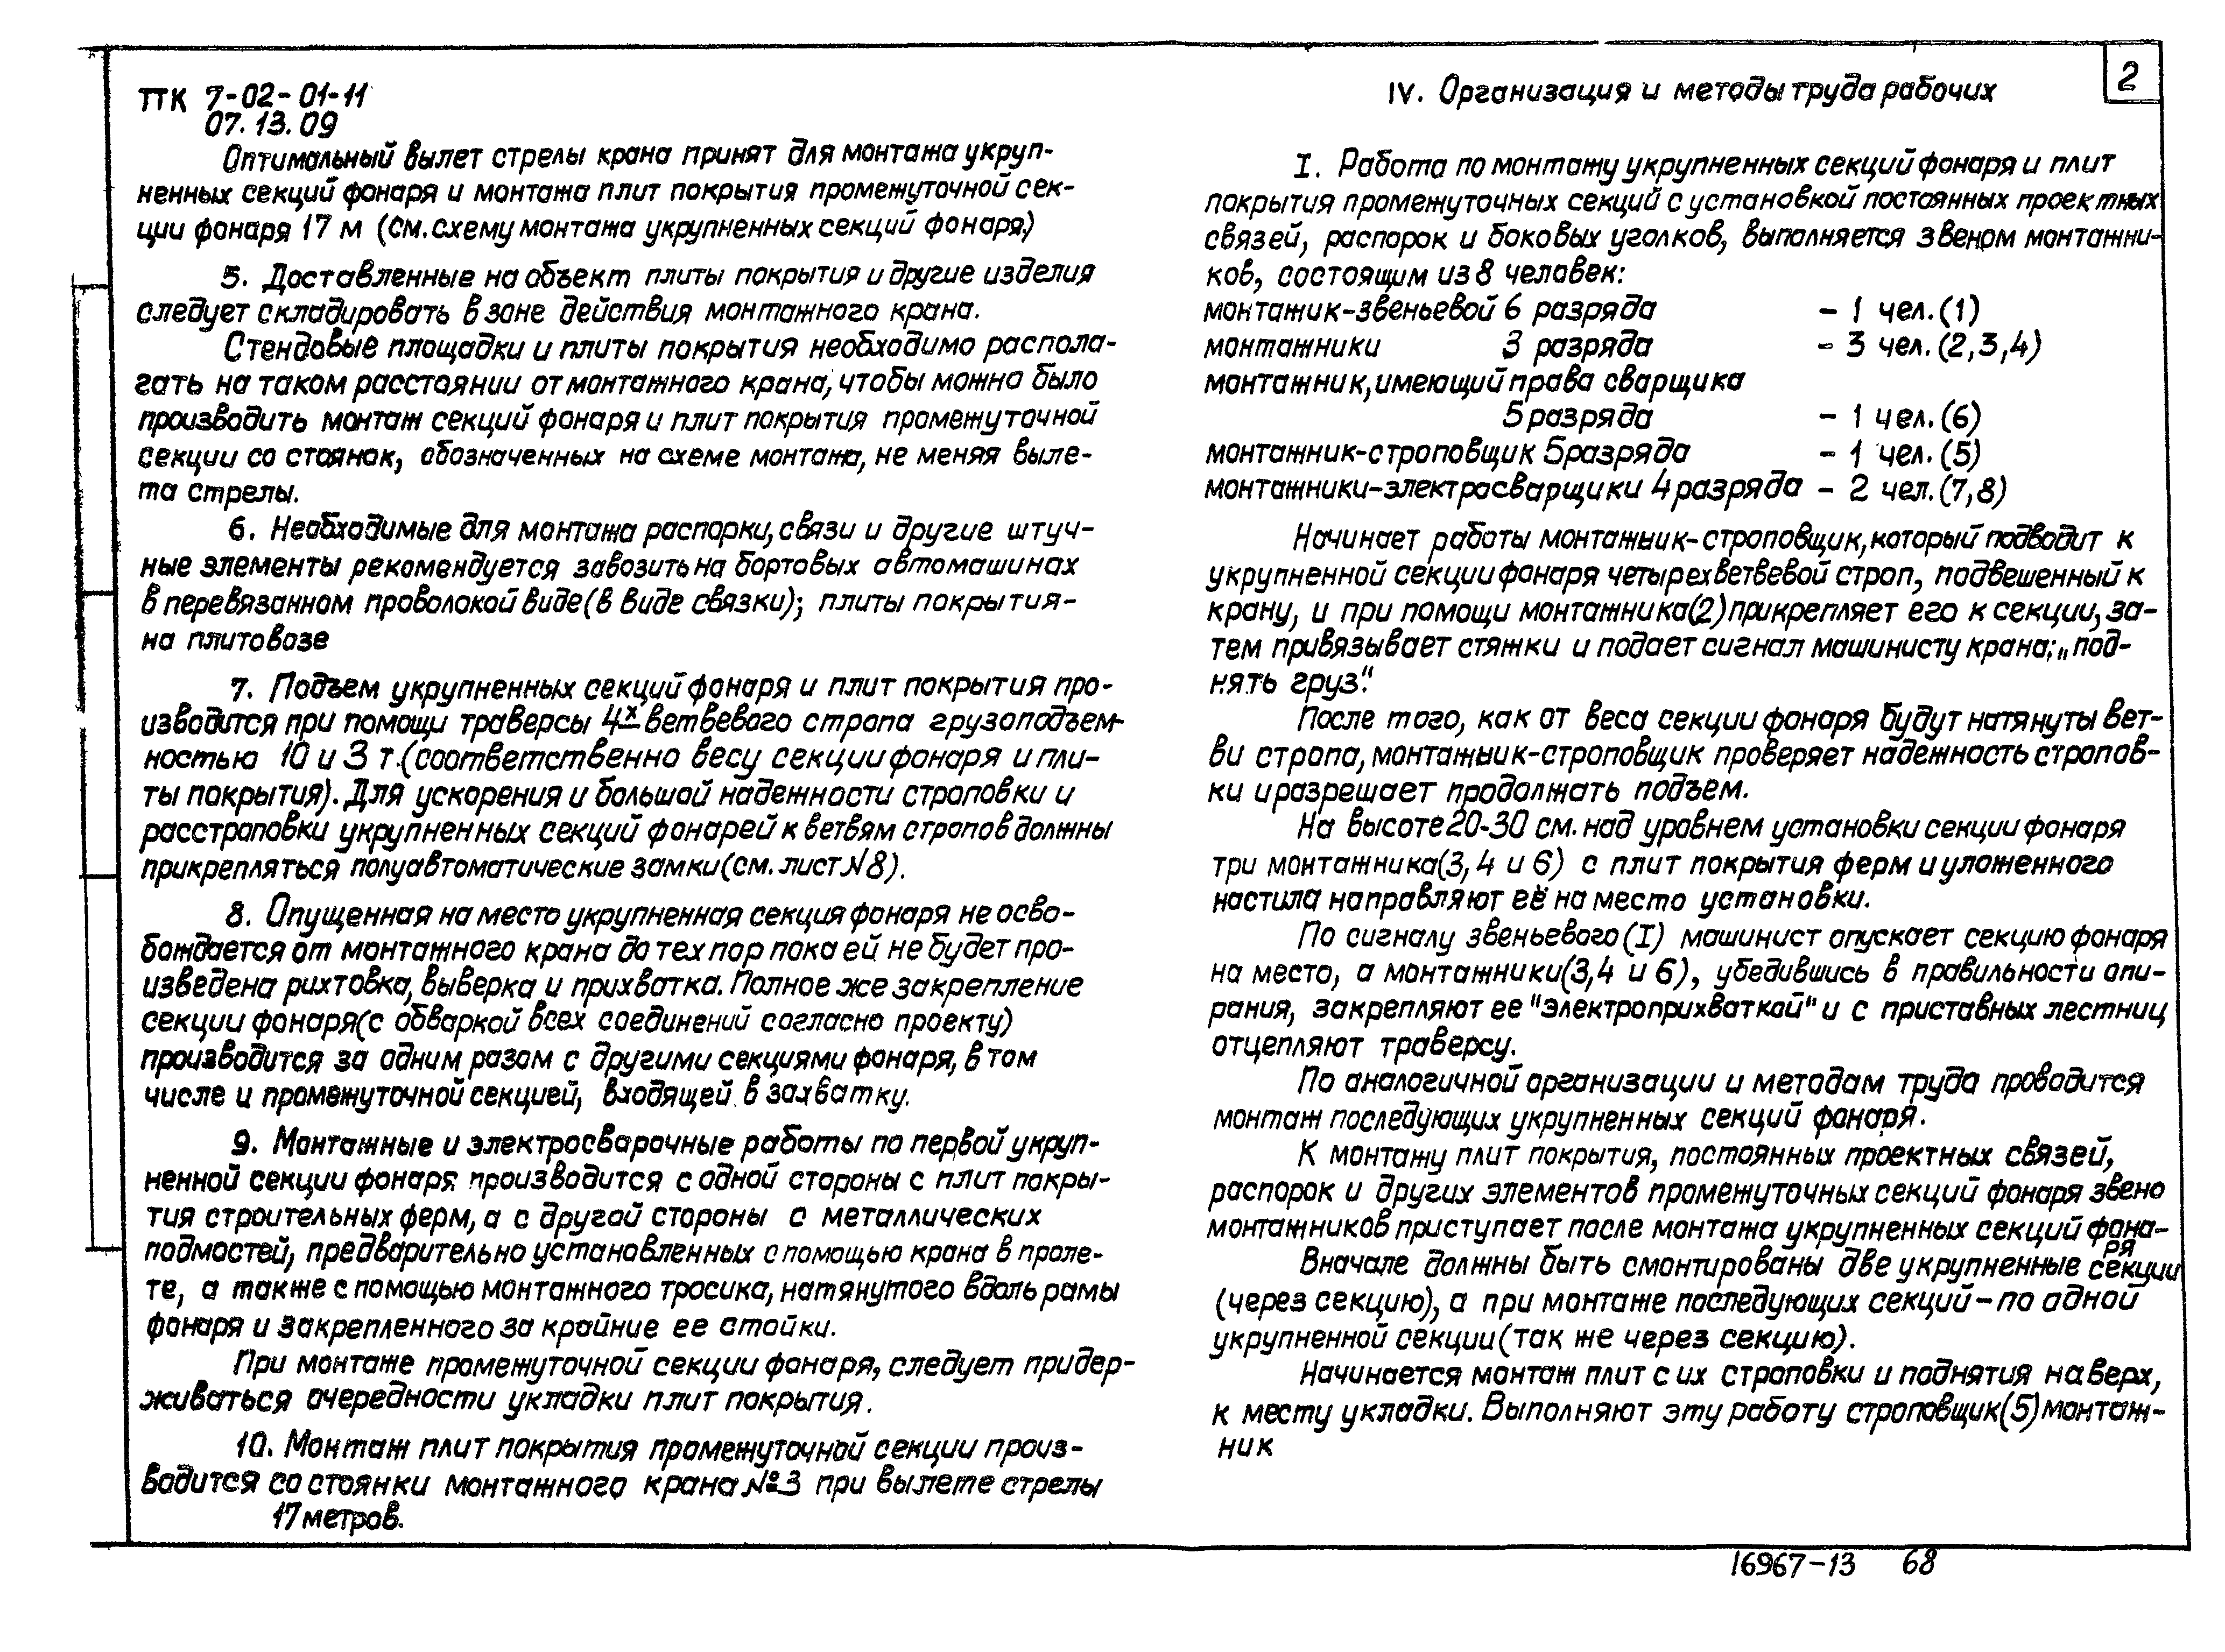 ТТК 7-02-01-11
07.13.09
Оптимальный вылет стрелы крана принят для монтажа укруп-
ненных секций фонаря и монтажа плит покрытия промежуточной сек-
ции фонаря 17 м (см. схему монтажа укрупненных секций фонаря)
5. Доставленные на объект плиты покрытия и другие изделия
следует складировать в зоне действия монтажного крана.
Стендовые площадки и плиты покрытия необходимо распола-
гать на таком расстоянии от монтажного крана, чтобы можно было
производить монтаж секций фонаря и плит покрытия промежуточной
секции со стоянок, обозначенных на схеме монтажа, не меняя выле-
та стрелы.
6. Необходимые для монтажа распорки, связи и другие штуч-
ные элементы рекомендуется завозить на бортовых автомашинах
в перевязанном проволокой виде (в виде связки); плиты покрытия-
на плитовозе
7. Подъем укрупненных секций фонаря и плит покрытия про-
изводится при помощи траверсы 4х ветвевого стропа грузоподъем-
ностью 10 и 3 т. (соответственно весу секции фонаря и пли-
ты покрытия). Для ускорения и большой надежности строповки и
расстроповки укрупненных секций фонарей к ветвям стропов должны
прикрепляться полуавтоматические замки (см. лист №8).
8. Опущенная на место укрупненная секция фонаря не осво-
бождается от монтажного крана до тех пор пока ей не будет про-
изведена рихтовка, выверка и прихватка. Полное же закрепление
секции фонаря (с обваркой всех соединений согласно проекту)
производится за одним разом с другими секциями фонаря, в том
числе и промежуточной секцией, входящей в захватку.
9. Монтажные и электросварочные работы по первой укруп-
ненной секции фонаря производится с одной стороны с плит покры-
тия строительных ферм, а с другой стороны с металлических
подмостей, предварительно установленных с помощью крана в проле-
те, а также с помощью монтажного тросика, натянутого вдоль рамы
фонаря и закрепленного за крайние ее стойки.
При монтаже промежуточной секции фонаря, следует придер-
живаться очередности укладки плит покрытия.
10. Монтаж плит покрытия промежуточной секции произ-
водится со стоянки монтажного крана №3 при вылете стрелы
17 метров.
2
IV. Организация и методы труда рабочих
I. Работа по монтажу укрупненных секций фонаря и плит
покрытия промежуточных секций с установкой постоянных проектных
связей, распорок и боковых уголков, выполняется звеном монтажни-
ков, состоящим из 8 человек:
монтажик-звеньевой 6 разряда – 1 чел. (1)
монтажники 3 разряда – 3 чел. (2,3,4)
монтажник, имеющий права сварщика
5 разряда – 1 чел. (6)
монтажник-строповщик 5 разряда – 1 чел. (5)
монтажники-электросварщики 4 разряда – 2 чел. (7,8)
Начинает работы монтажник-строповщик, который подводит к
укрупненной секции фонаря четырехветвевой строп, подвешенный к
крану, и при помощи монтажника (2) прикрепляет его к секции, за-
тем привязывает стяжки и подает сигнал машинисту крана; „под-
нять груз".
После того, как от веса секции фонаря будут натянуты вет-
ви стропа, монтажник-строповщик проверяет надежность стропов-
ки и разрешает продолжать подъем.
На высоте 20-30 см. над уровнем установки секции фонаря
три монтажника (3, 4 и 6) с плит покрытия ферм и уложенного
настила направляют её на место установки.
По сигналу звеньевого (I) машинист опускает секцию фонаря
на место, а монтажники (3,4 и 6), убедившись в правильности опи-
рания, закрепляют ее "электроприхваткой" и с приставных лестниц
отцепляют траверсу.
По аналогичной организации и методам труда проводится
монтаж последующих укрупненных секций фонаря.
К монтажу плит покрытия, постоянных проектных связей,
распорок и других элементов промежуточных секций фонаря звено
монтажников приступает после монтажа укрупненных секций фона-
ря
Вначале должны быть смонтированы две укрупненные секции
(через секцию), а при монтаже последующих секций – по одной
укрупненной секции (так же через секцию).
Начинается монтаж плит с их строповки и поднятия наверх,
к месту укладки. Выполняют эту работу строповщик (5) монтаж-
ник
16967-13 68